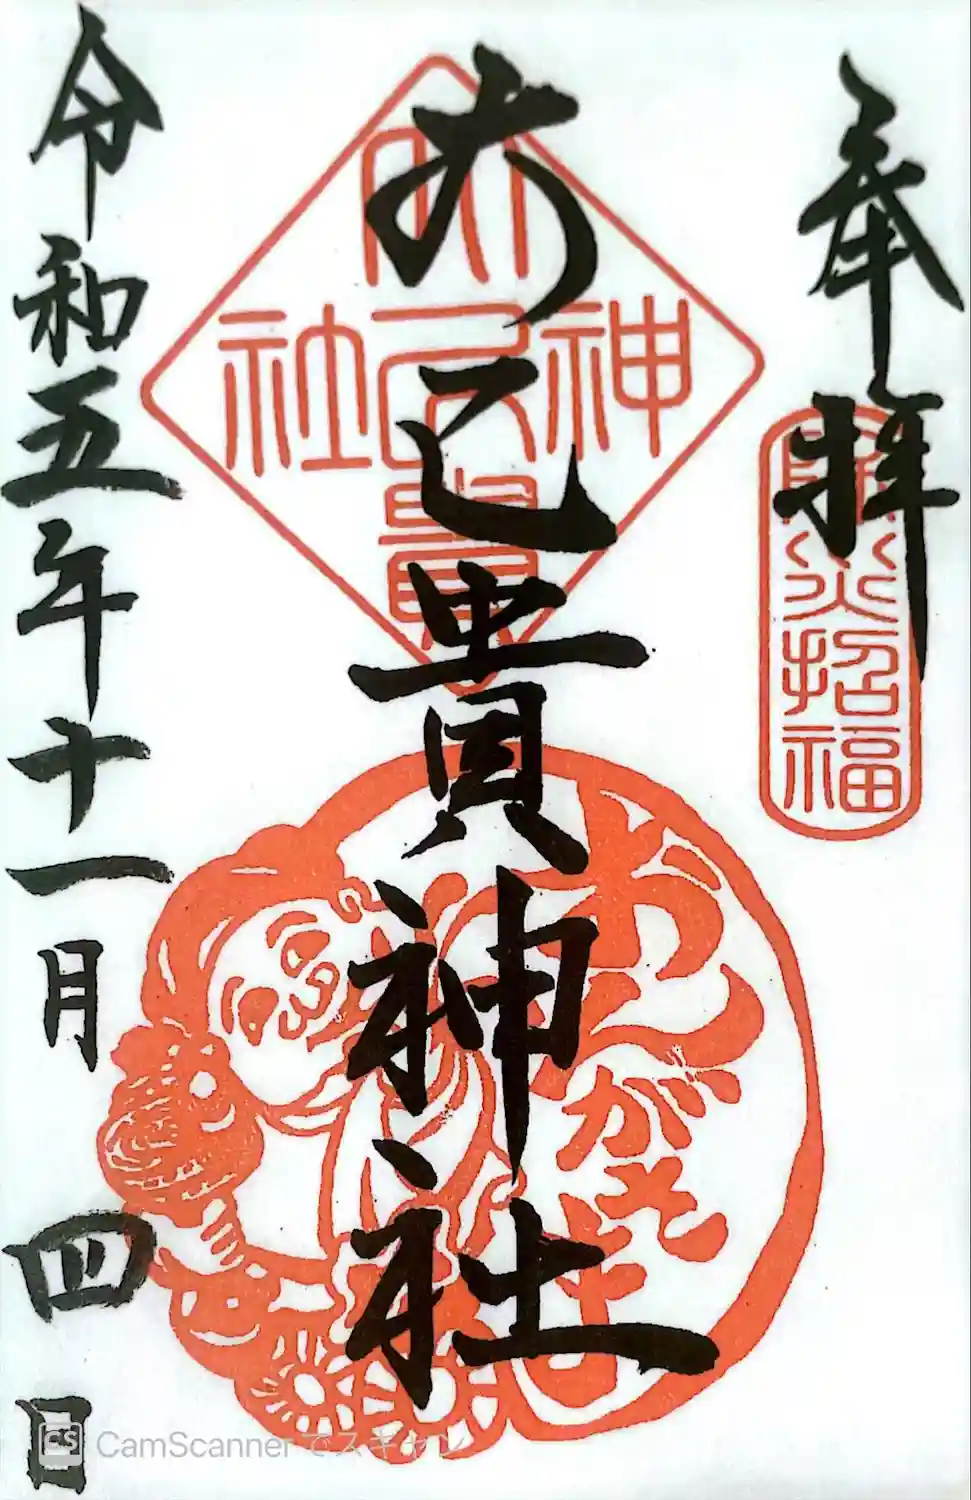 奉拝
除災招福
大己貴神社
大己貴
神社
令和五年十一月四日
CS CamScannerでスキャン